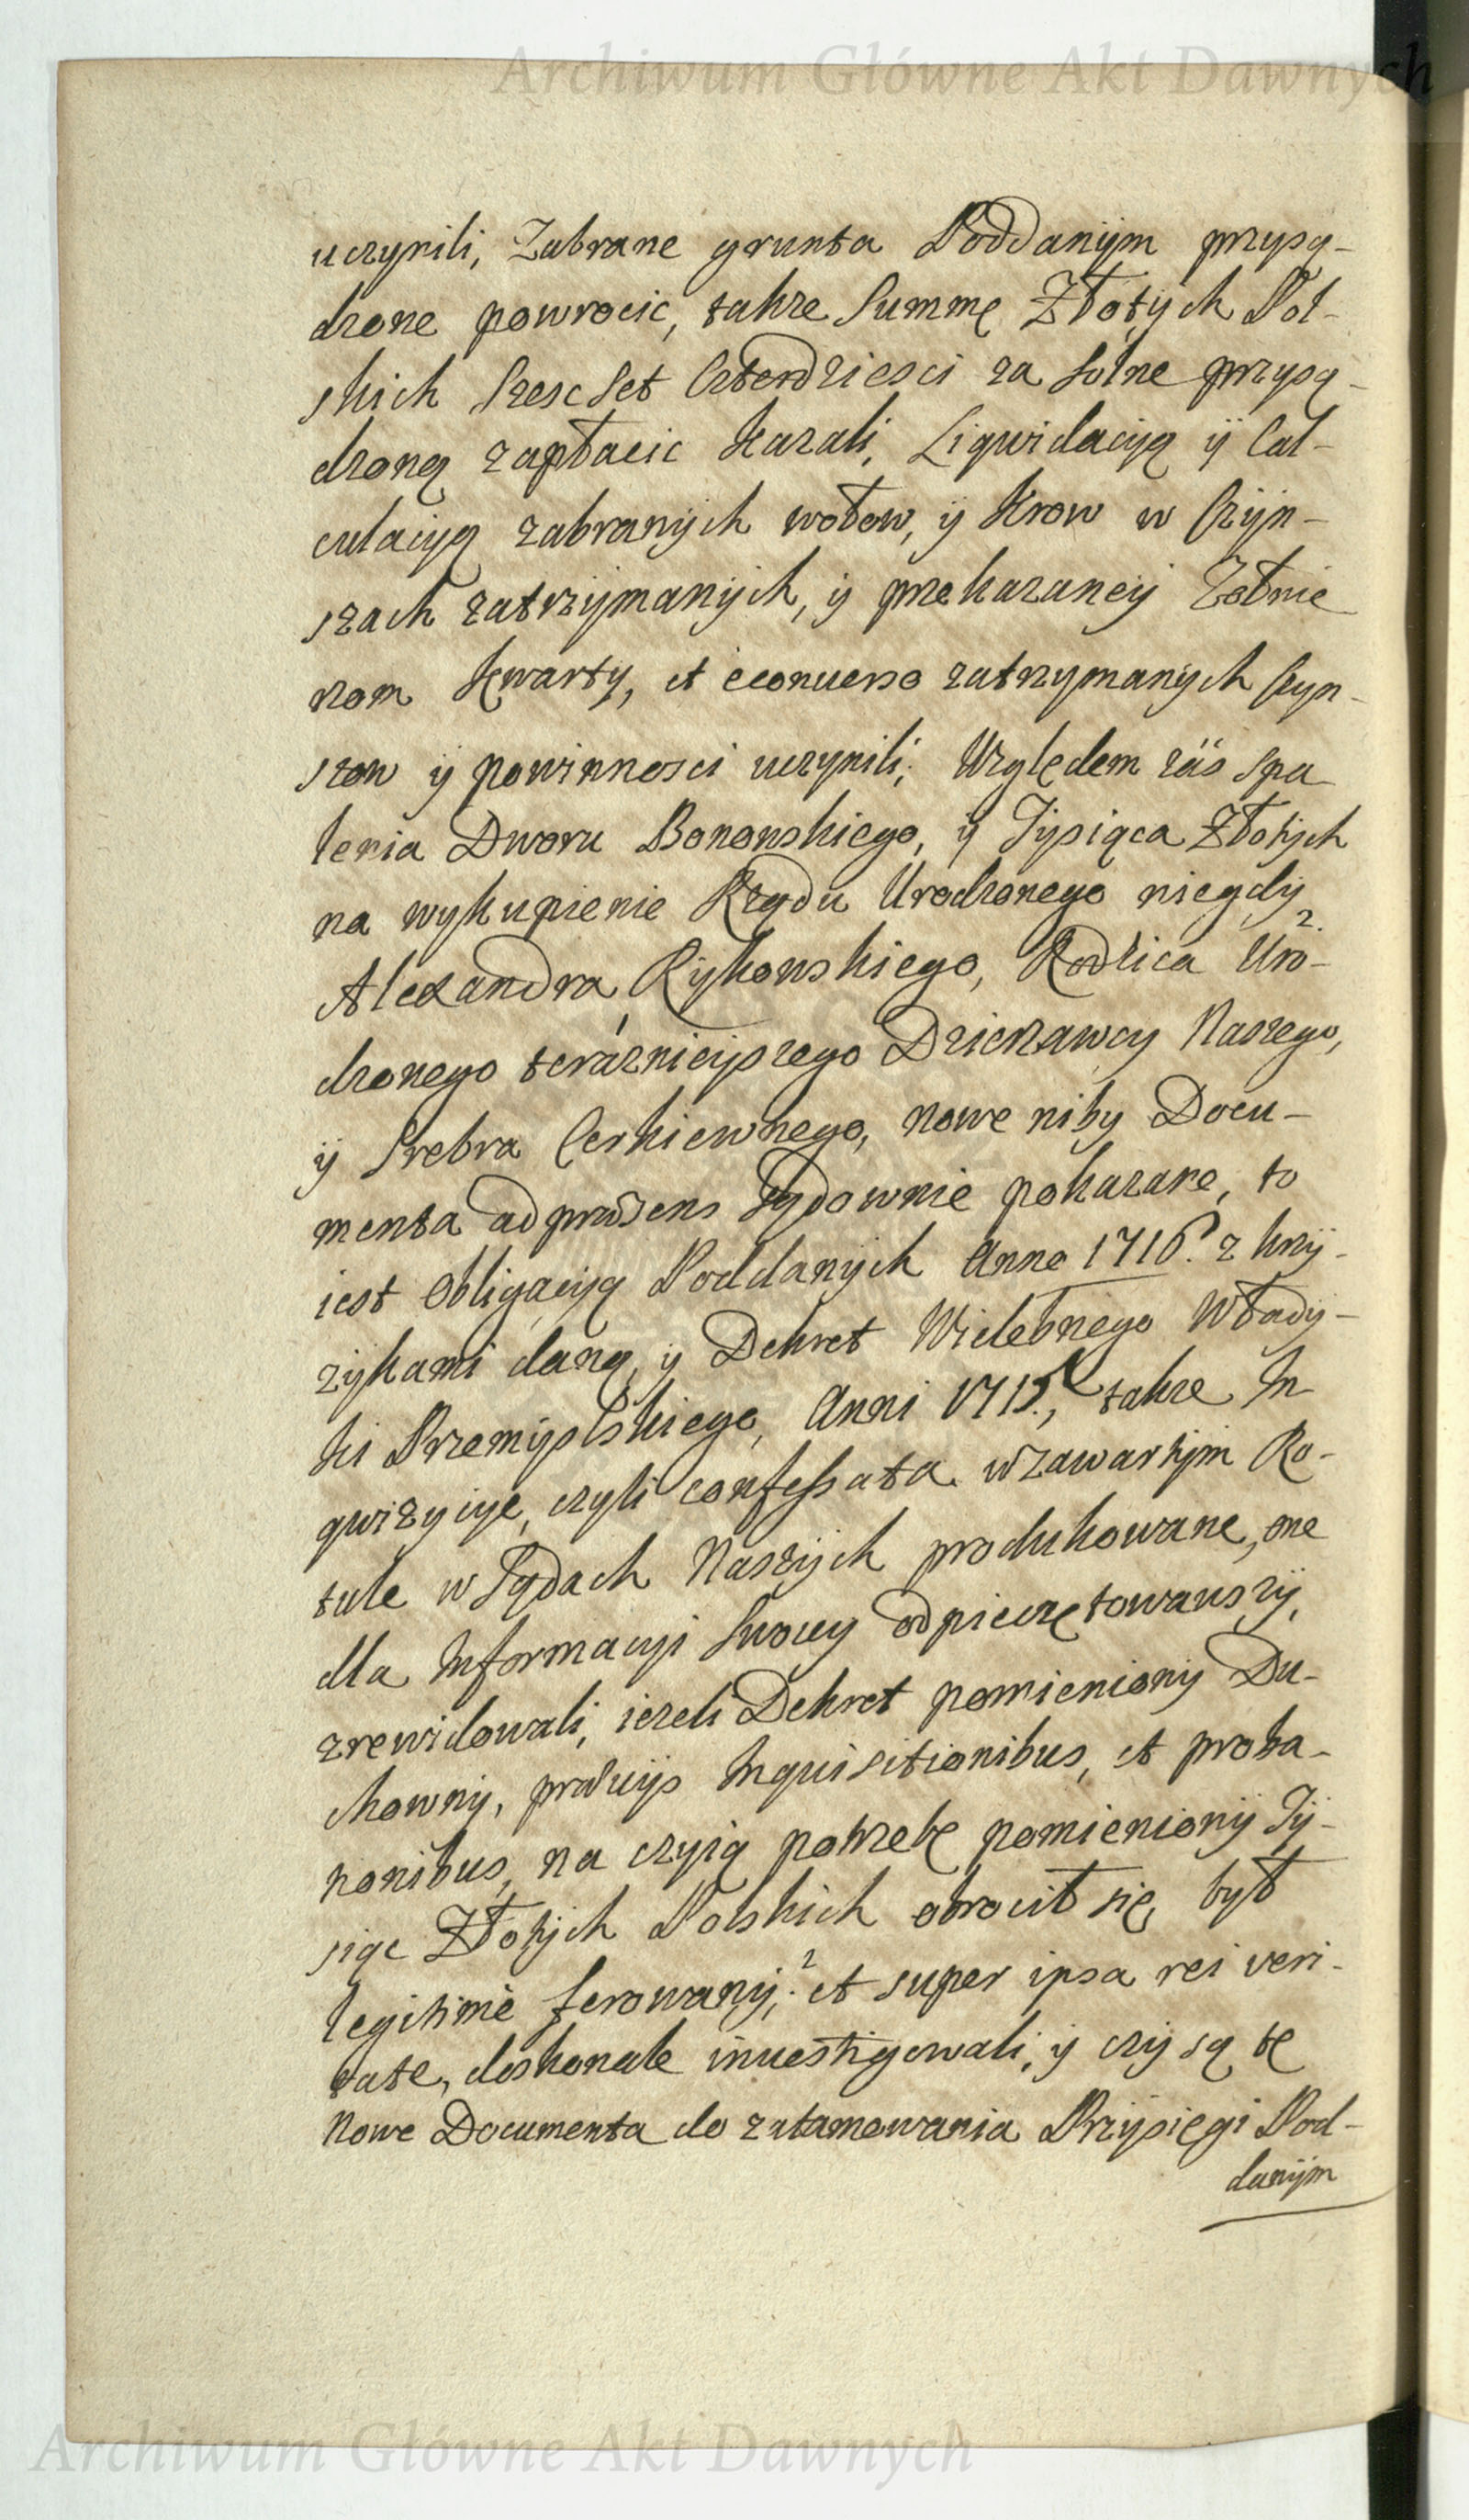 Archiwum Główne Akt Dawnych
uczynili, Zabrane grunta Poddanÿm przysą-
dzone powrocic, takze Summę Złotÿch Pol-
skich Szesc Set Czterdziesci za Solne przysą-
dzoną zapłacic kazali, Liqwidacyą ÿ Cal-
culacyą zabranÿch wołow, ÿ Krow w Czÿn-
szach zatrzÿmanÿch, ÿ przekazaneÿ Zołnie
rzom Kwarty, et econuerso zatrzymanÿch Czyn-
szow ÿ powinnosci uczynili; Względem zás Spa
lenia Dworu Bonowskiego, ÿ Tÿsiąca Złotÿch
na wykupienie Rządu Urodzonego niegdÿ
Alexandra Rÿkowskiego, Rodzica Uro-
dzonego teráznieÿszego Dzierzawcy Naszego,
ÿ Srebra Cerkiewnego, nowe niby Docu-
menta ad præsens Sądownie pokazane, to
iest Obligacyą Poddanÿch Anno 1716. z krzÿ-
zÿkami daną, ÿ Dekret Wielebnego Władÿ-
ki Przemÿslskiego, Anni 1715, takze In
qwizycye, czyli confessata w zawartÿm Ro-
tule w Sądach Naszÿch produkowane, one
dla Informacyi Swoiey odpieczętowawszÿ,
zrewidowali, iezeli Dekret pomienionÿ Du-
chownÿ, præviÿs Inquisitionibus, et proba-
tionibus, na czyią potrzebę pomienionÿ Tÿ-
siąc Złotÿch Polskich obrocił się, był
legitimè ferowanÿ; et super ipsa rei veri-
tate, doskonale inuestigowali, ÿ czÿ są te
Nowe Documenta do zatamowania Przÿsięgi Pod-
danÿm
Archiwum Główne Akt Dawnych